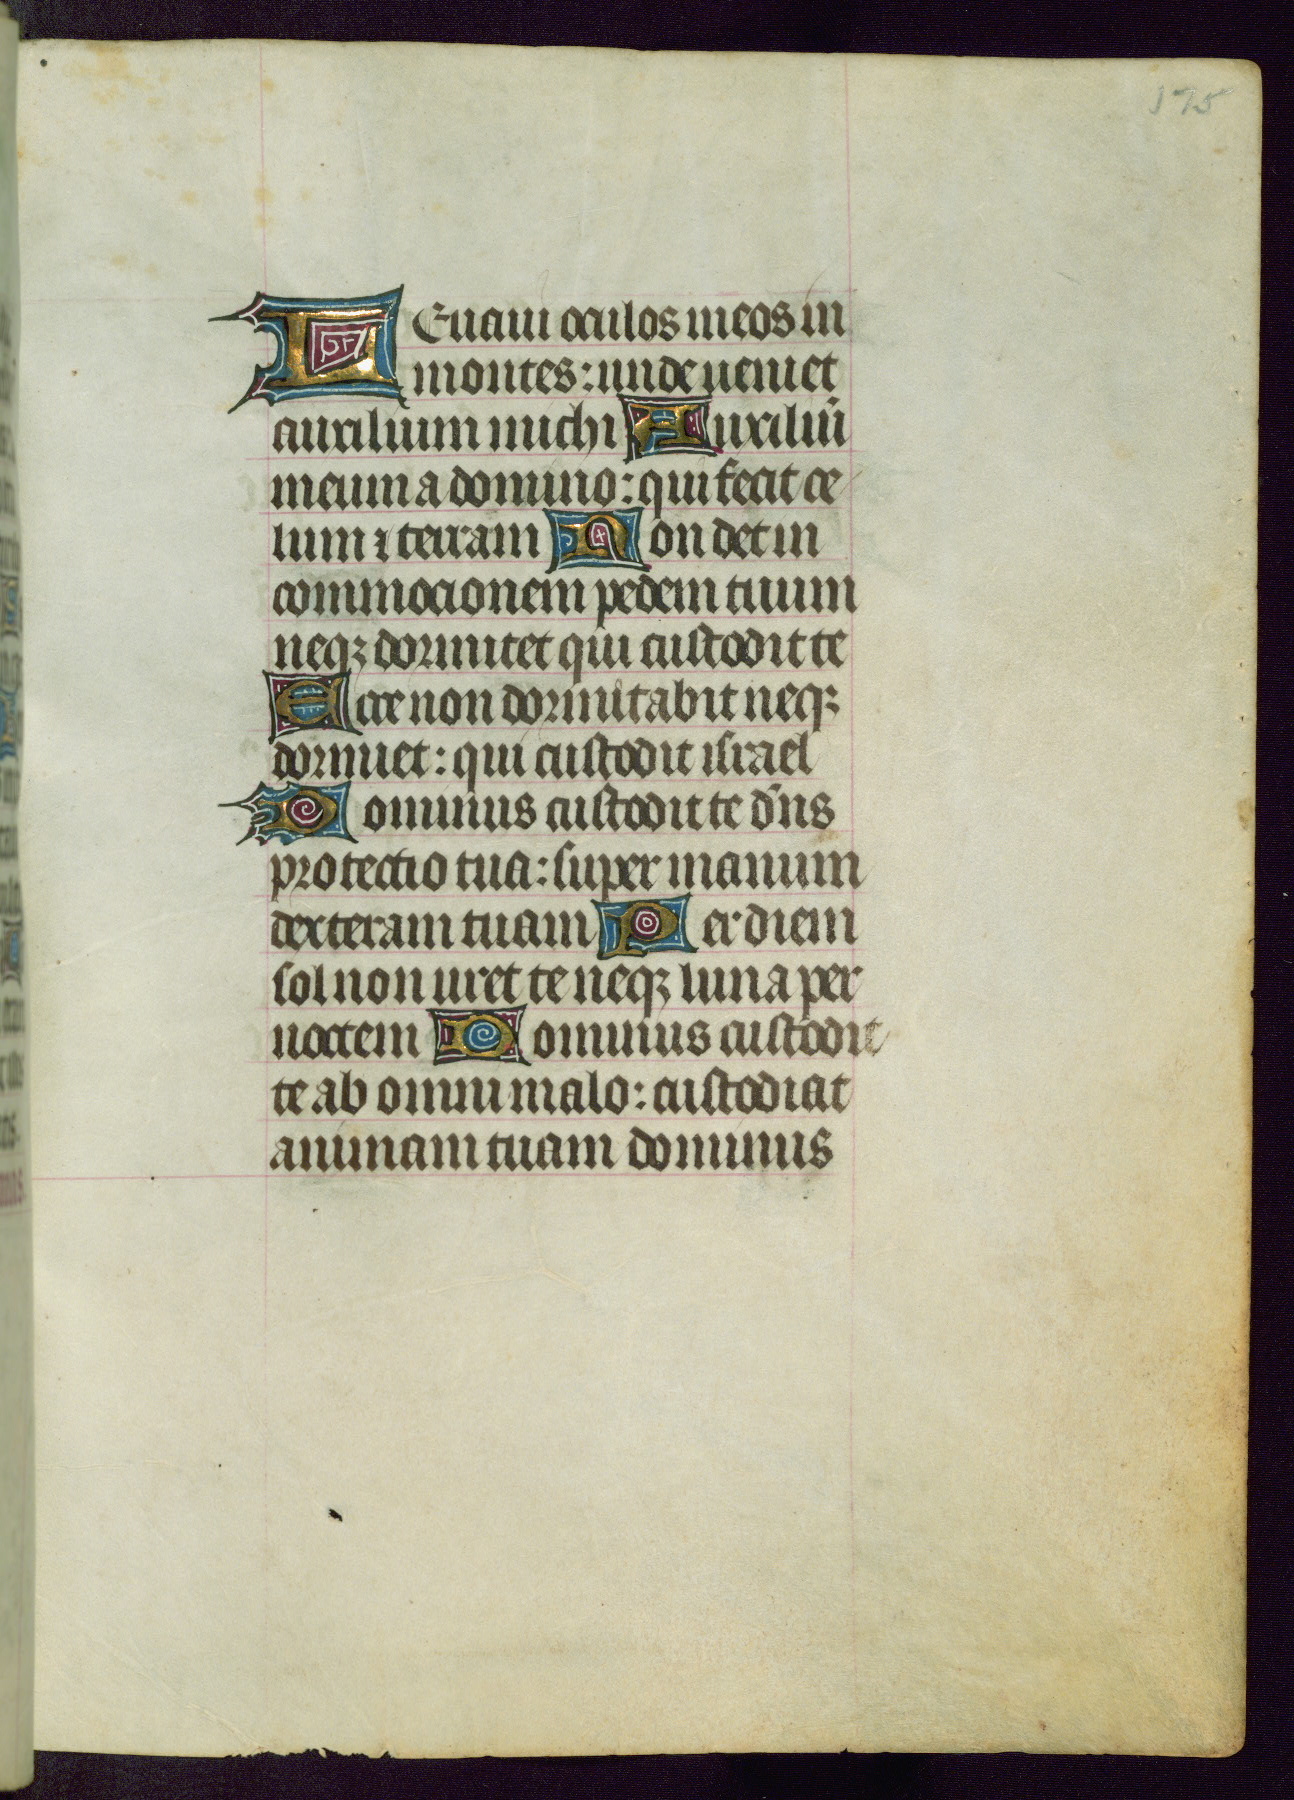 175
LEuaui oculos meos in
montes: unde ueniet
auxilium michi Auxiliū
meum a domino: qui fecit ce
lum ⁊ terram Non det in
commocionem pedem tuum
neqꝫ dormitet qui custodit te
Ecce non dormitabit neqꝫ
dormiet: qui custodit israel
Dominus custodit te dn̄s
protectio tua: super manum
dexteram tuam Per diem
sol non uret te neqꝫ luna per
noctem Dominus custodit
te ab omni malo: custodiat
animam tuam dominus